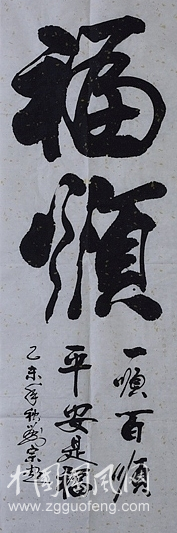 福順
一順百順
平安是福
乙未年秋
中国国风网
www.zgguofeng.com